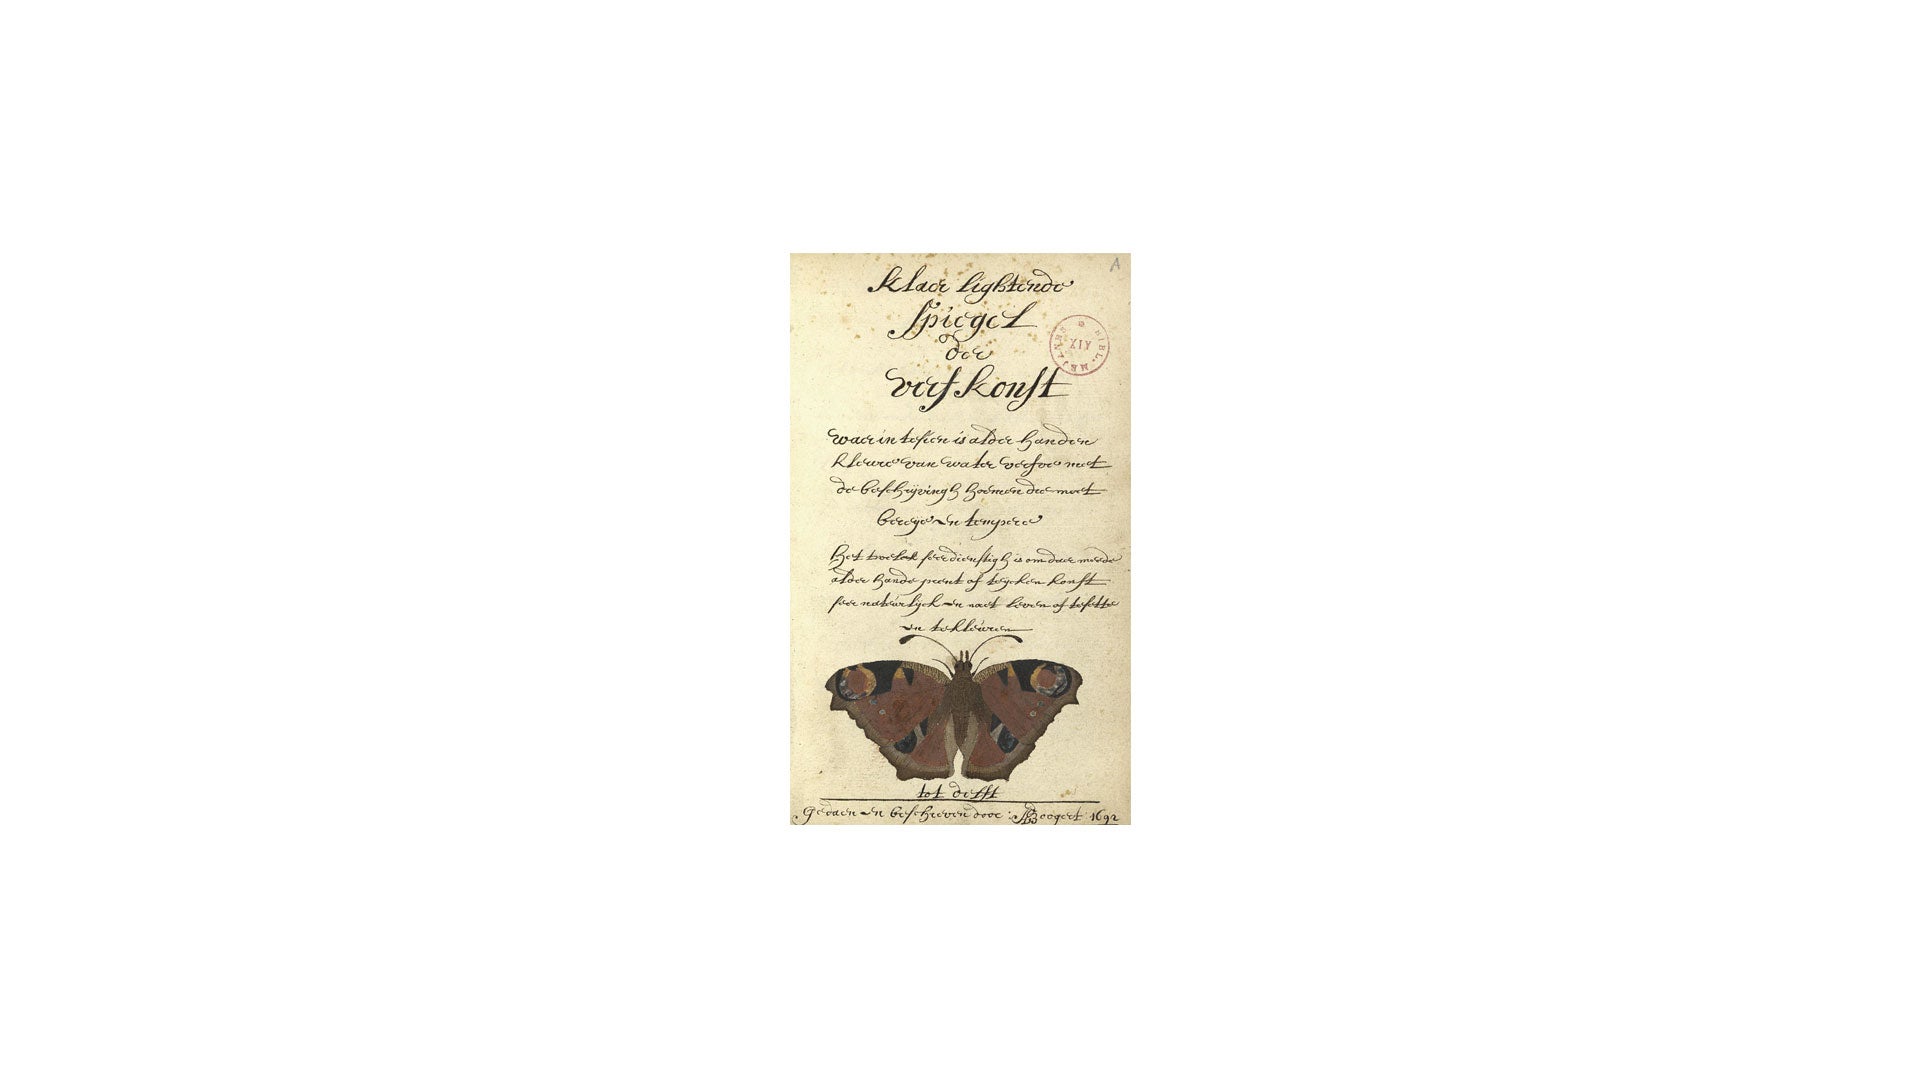 A
Klaer lightende
Spiegel
der
verfkonst
waer in tesien is alder handen
kleure van water verfve met
de beschrijvingh hoemen die moet
bereije en tempere
Het twelck seer dienstigh is om daer meede
alder hande prent of teijcken konst
seer natuerlijck en naet leven of tesette
en tekleuren
tot delft
Gedaen en beschreven door : A Boogert 1692
BIBL. MEJANES
XIV